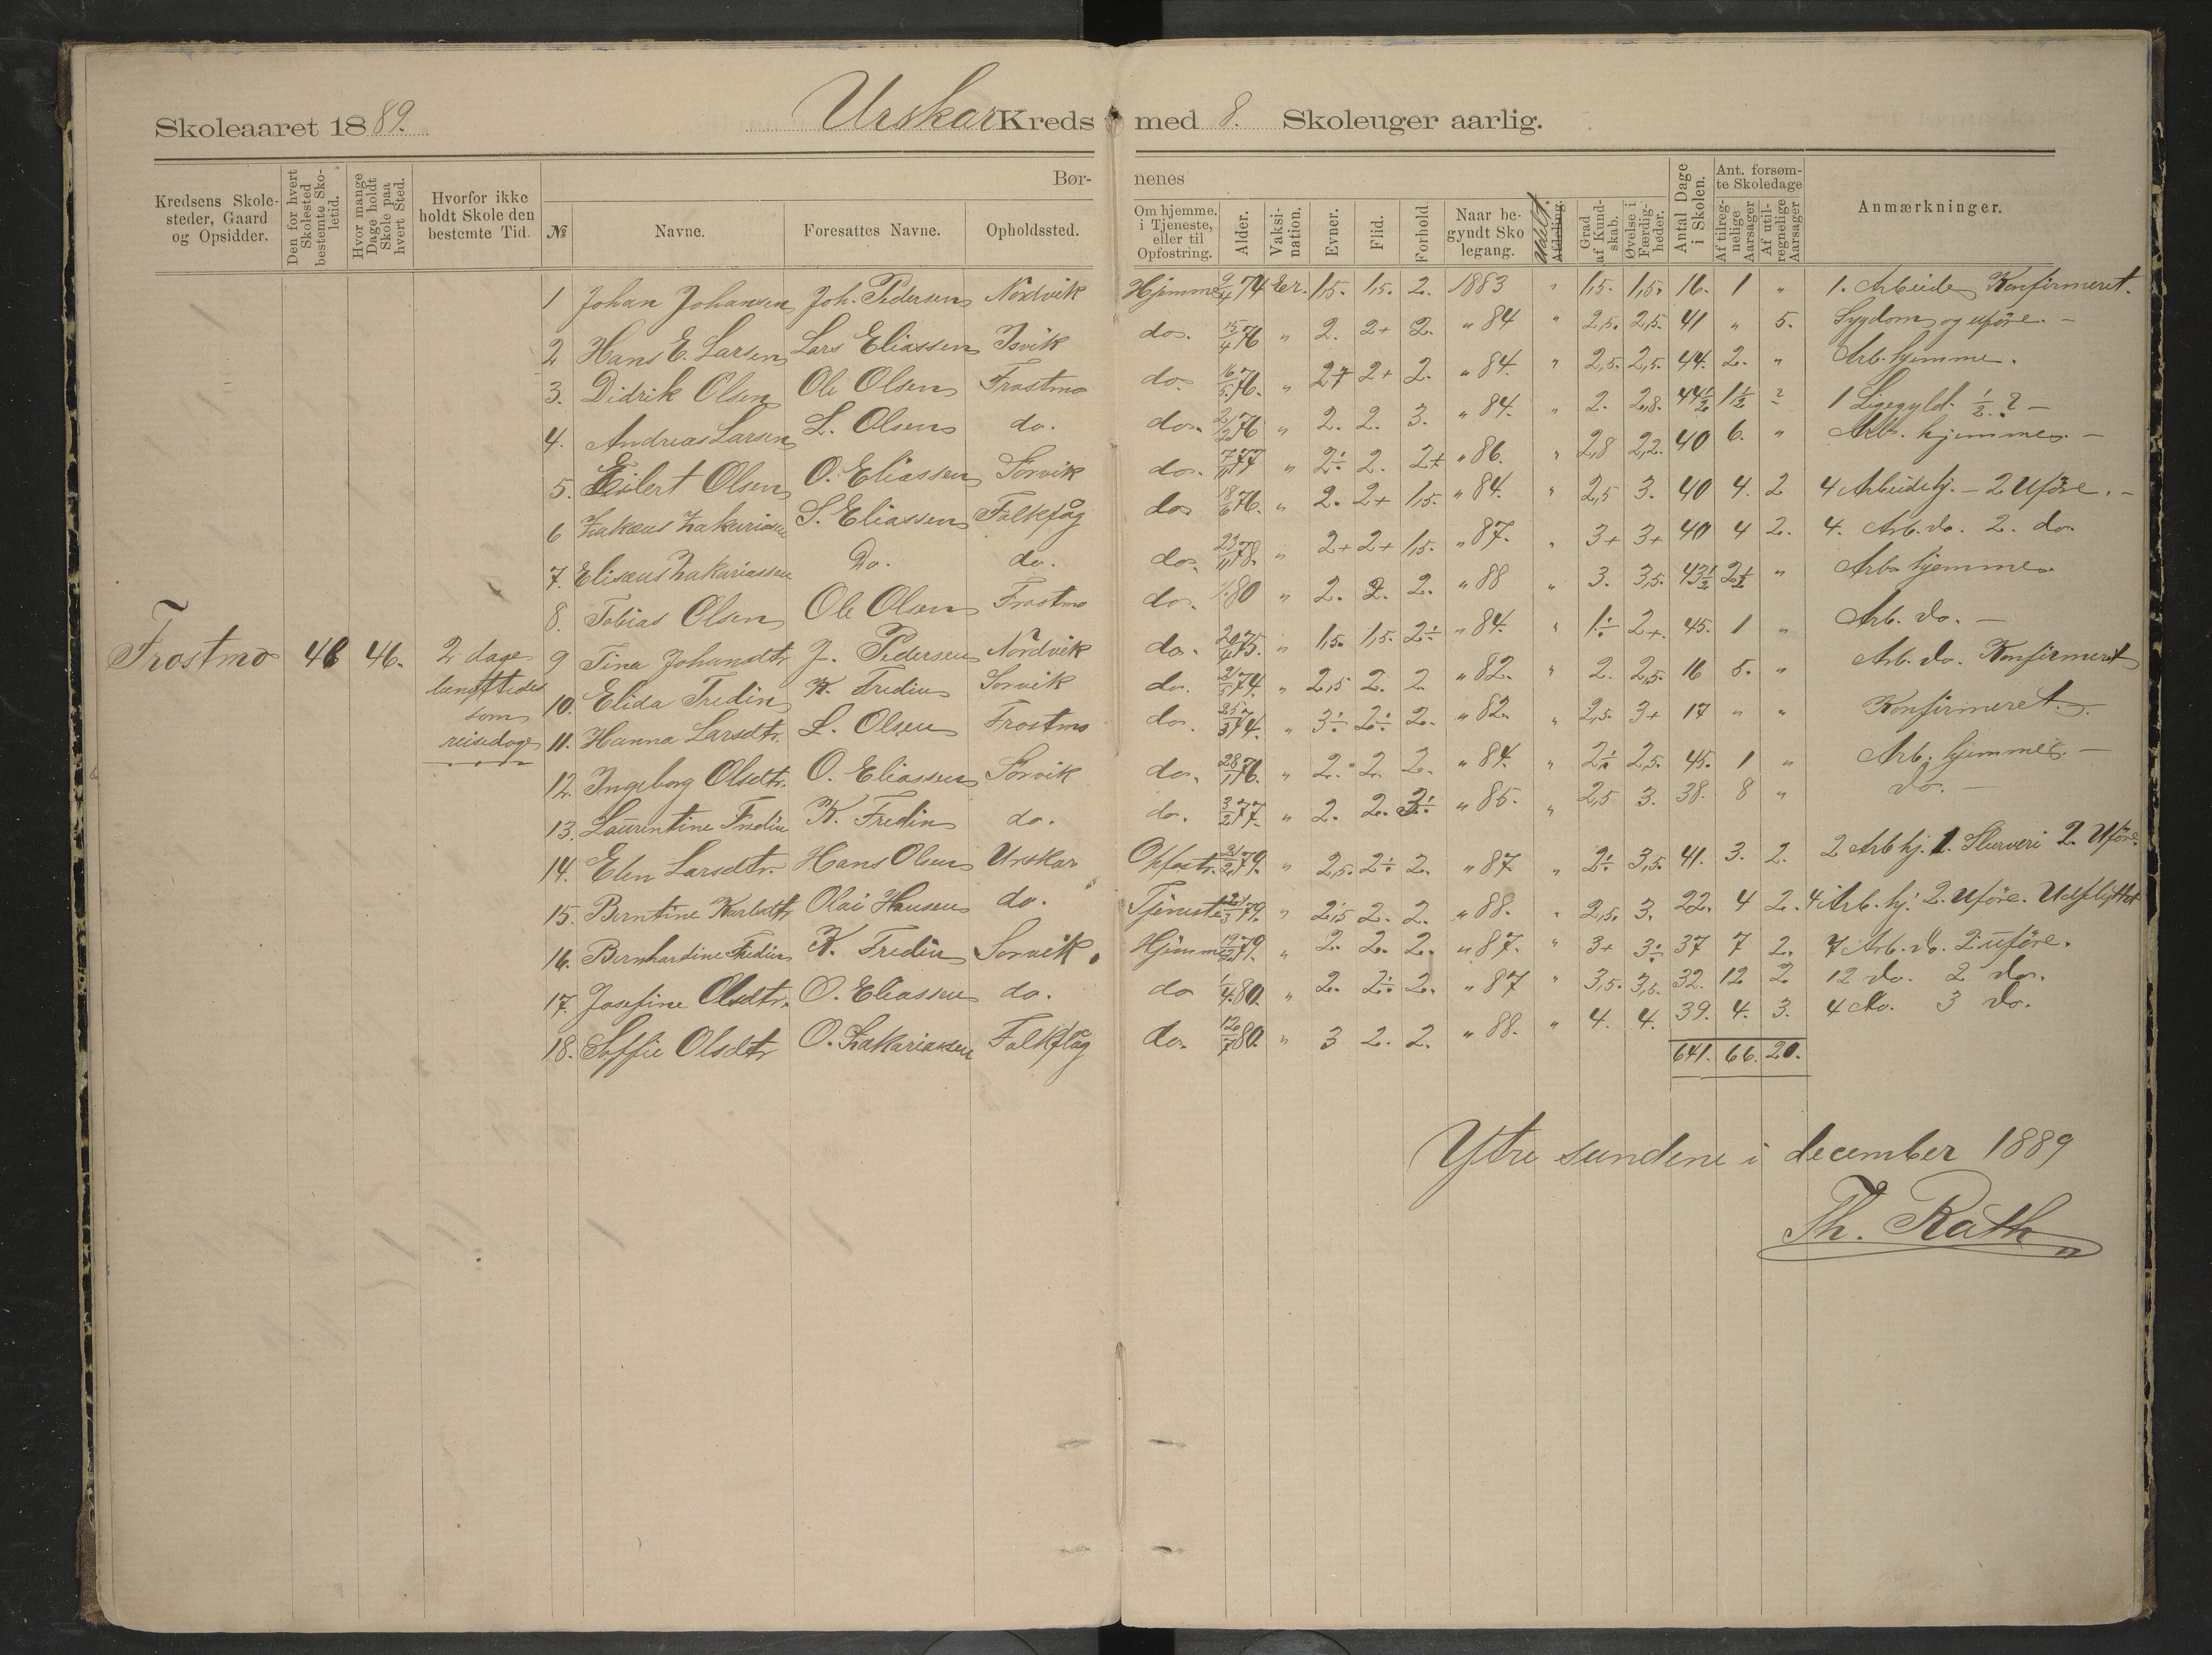 Skoleaaret 1889. Urskar Kreds med 8. Skoleuger aarlig.
Kredsens Skolesteder, Gaard og Opsidder.
Den for hvert Skolested bestemte Skoletid.
Hvor mange Dage holdt Skole paa hvert Sted.
Hvorfor ikke holdt Skole den bestemte Tid.
Børnenes
№ Navne. Foresattes Navne. Opholdssted.
Om hjemme, i Tjeneste, eller til Opfostring. Alder. Vaksination. Evner. Flid. Forhold. Naar begyndt Skolegang. Afdeling. Grad af Kundskab. Øvelse i Færdigheder. Antal Dage i Skolen. Ant. forsømte Skoledage Af tilregnelige Aarsager Af utilregnelige Aarsager Anmærkninger.
1 Johan Johansen Joh. Pedersen Nordvik Hjemme 9/4 74 Er. 1,5. 1,5. 2. 1883 " 1,5. 1,5. 16. 1 " 1. Arbeide Konfirmeret.
2 Hans E. Larsen Lars Eliassen Isvik do. 15/4 76 " 2. 2+ 2. " 84 " 2,5. 2,5. 41 " 5. Sygdom og uføre. –
3. Didrik Olsen Ole Olsen Frostmo do. 16/5 76. " 2+ 2+ 2. " 84. " 2,5. 2,5. 44. 2. " Arb. hjemme.
4. Andreas Larsen L. Olsen do. do. 76 " 2. 2. 3. " 84. " 2. 2,8. 44½ 1½ ? 1 Ligegyld. ½. ? –
5. Eilert Olsen O. Eliassen Sorvik do. 7/11 77 " 2÷ 2. 2+ " 86. " 2,8 2,2. 40 6. " Arb. hjemme. –
6 Zakæus Zakariasen S. Eliassen Falkflåg do 18/6 76. " 2. 2+ 1,5. " 84. " 2,5 3. 40 4. 2 4 Arbeide hj. – 2 Uføre. –
7. Elisæus Zakariassen Do. do. do. 23/11 78. " 2+ 2+ 1,5. " 87. " 3+ 3+ 40 4 2. 4. Arb. do. 2. do.
8. Tobias Olsen Ole Olsen Frostmo do. 80 " 2. 2. 2. " 88 " 3. 3,5. 43½ 2½ " Arb hjemme.
Frostmo 48 46. 2 dage
9 Tina Johansdtr J. Pedersen Nordvik do. 75. " 1,5. 1,5. 2÷ " 84. " 1÷ 2+. 45. 1 " Arb. do. –
som
10. Elida Fredin K. Fredin Sorvik do. 74. " 2,5 2. 2. " 82. " 2. 2,5. 16 5. " Arb. do. Konfirmeret
reisedage
11. Hanna Larsdtr. L. Olsen Frostmo do. 25/3 74. " 3÷ 2÷ 2. " 82. " 2,5. 3+ 17 " " Konfirmeret.
12. Ingeborg Olsdtr. O. Eliassen Sorvik do. 28/1 76. " 2. 2. 2. " 84. " 2÷ 2,5. 45. 1 " Arb. hjemme. –
13. Laurentine Fredin K. Fredin do. do. 3/2 77. " 2. 2. 2÷ " 85. " 2,5 3. 38. 8 " do. –
14. Elen Larsdtr. Hans Olsen Urskar Opfostr. 79. " 2,5. 2÷ 2. " 87 " 2÷ 3,5. 41. 3. 2. 2 Arb hj. 1. Slurveri 2. Uføre.
15. Berntine Karlsdtr Olai Hansen do. Tjeneste 79. " 2,5 2. 2. " 88. " 2,5. 3. 22. 4 2. 4 Arb. hj. 2. Uføre. Udflyttet
16. Bernhardine Fredin K. Fredin Sorvik. Hjemme 79. " 2. 2. 2. " 87. " 3+ 3÷ 37 7 2. 7 Arb. do. 2 uføre.
17. Josefine Olsdtr. O. Eliassen do. do 1/4 80. " 2. 2÷ 2. " 87 " 3,5. 3,5. 32. 12 2 12 do. 2 do.
18. Soffie Olsdtr O. Zakariassen Falkflåg do. 12/7 80. " 3 2. 2. " 88. " 4. 4. 39. 4. 3. 4 do. 3 do.
641. 66. 20.
Ytre sundene i december 1889
Th. Rath